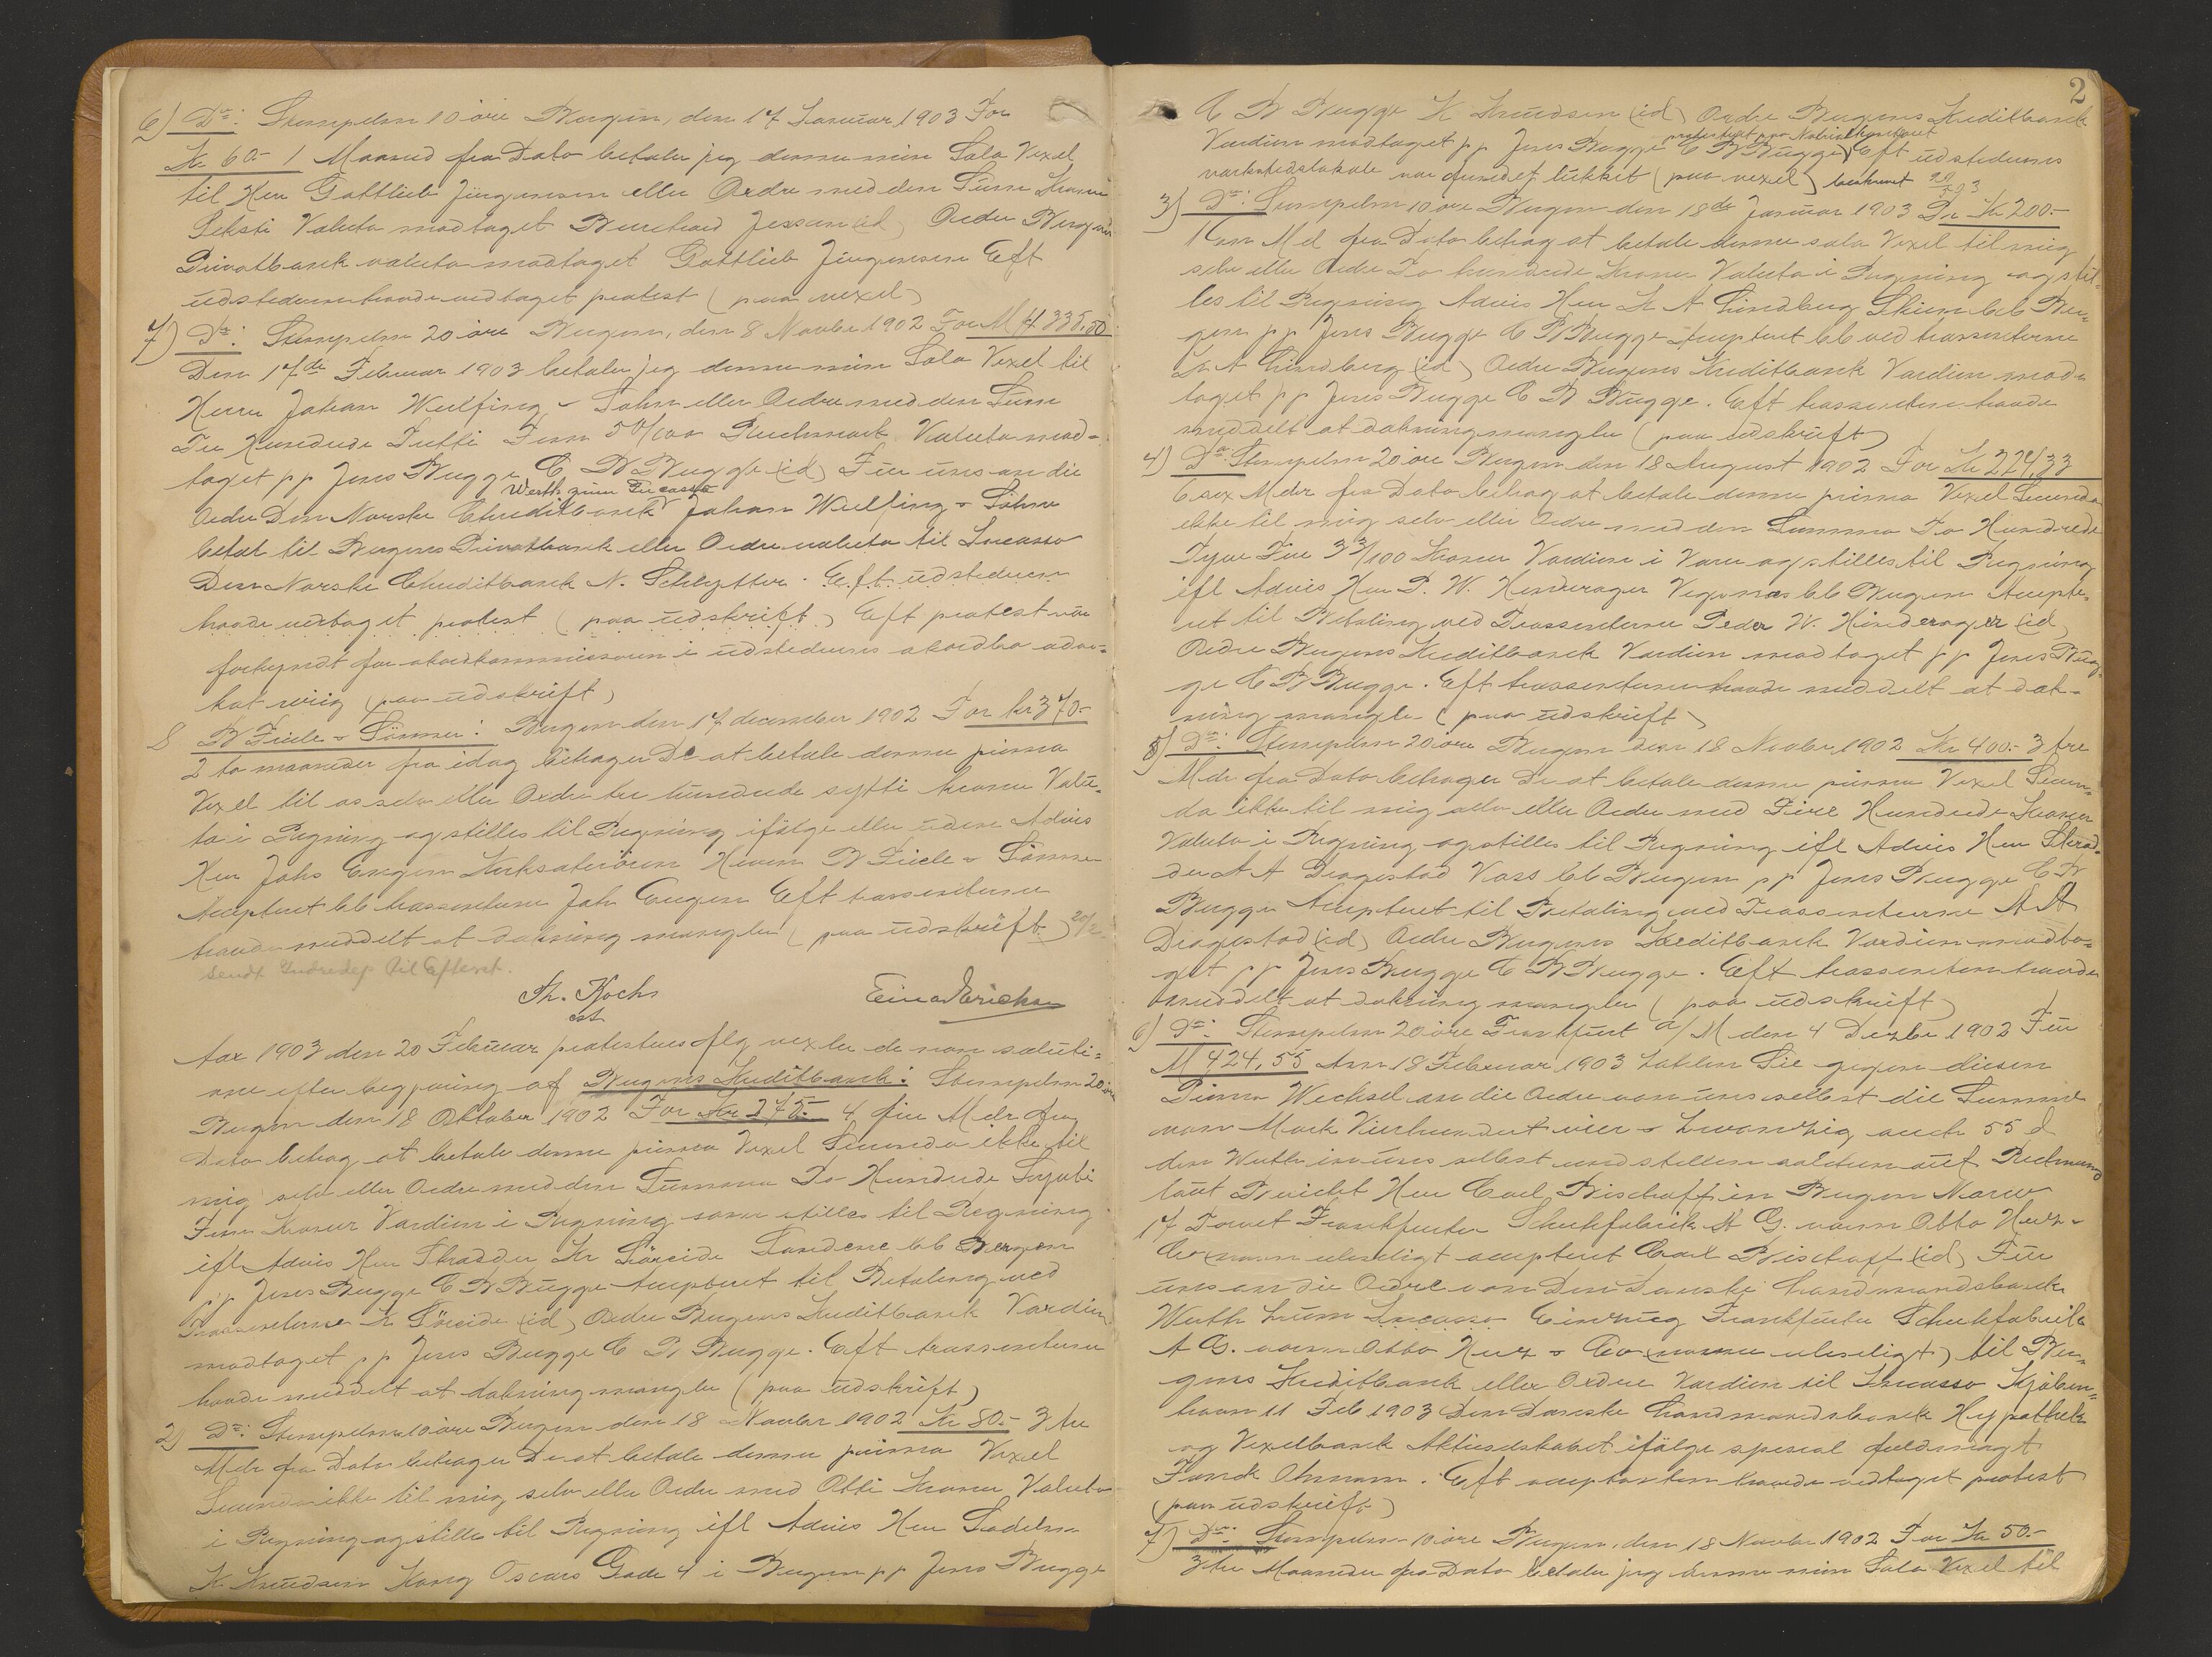 6) Do: Stempelm 10 öre Bergen, den 17 Januar 1903 For
Kr 60.- 1 Maaned fra Dato betaler jeg denne min Sola Vexel
til Herr Gottlieb Jürgensen eller Ordre med den Sum Kroner
Seksti Valuta modtaget Bernhard Jessen (id) Ordre Bergens
Privatbank valuta modtaget Gottlieb Jürgensen Eft
udstederen havde vedtaget protest (paa vexel)
7) Do: Stempelm 20 öre Bergen, den 8 Novbr 1902 For M 335,50
Den 17de Februar 1903 betaler jeg denne min Sola Vexel til
Herrer Johan Wülfing & Sohn eller Ordre med den Sum
Tre Hundrede Tretti Fem 50/100 Reichsmark Valuta mod-
taget pp Jens Bugge C B Bugge (id) Für uns an die
Ordre Den Norske Creditbank Werth zum Incasso Johan Wülfing & Sohn
betal til Bergens Privatbank eller Ordre valuta til Incasso
Den Norske Creditbank N. Schlytter. Eft udstederen
havde vedtaget protest (paa udskrift) Eft protest var
forkyndt for akordkommissæren i udstederens akordbo advo-
kat (paa udskrift)
8 B Friele & Sönner: Bergen den 17 december 1902 For kr 370.-
2 to maaneder fra idag behager De at betale denne prima
Vexel til os selv eller Ordre tre hundrede sytti kroner Valu-
ta i Regning og stilles til Regning ifölge eller uden Advis
Herr Johs Engen Kirksæterören Herrer B Friele & Sönner
Accepteret bb trassenterne Joh Engen Eft trassenterne
havde meddelt at dækning mangler (paa udskrift) 20/2
Sendt
Th. Koch Einar Ericksen
Aar 1903 den 20 Februar protesteres flg vexler de non soluti-
one efter begjæring af Bergens Kreditbank: Stempelm 20 öre
Bergen den 18 Oktober 1902 For Kr 275.- 4 fire Mdr fra
Dato behag at betale denne prima Vexel Secunda ikke til
mig selv eller Ordre med den Summa To Hundrede Sytti
Fem Kroner Værdien i Regning som stilles til Regning
ifl Advis Herr Skrædder Kr Söreide Sandene bb Bergen
pp Jens Bugge C B Bugge Accepteret til Betaling ved
Trassenterne Kr Söreide (id) Ordre Bergens Kreditbank Værdien
modtaget pp Jens Bugge C B Bugge. Eft trassenterne
havde meddelt at dækning mangler (paa udskrift)
2) Do: Stempelm 10 öre Bergen den 18 Novbr 1902 Kr 80.- 3 tre
Mdr fra Dato behager De at betale denne prima Vexel
Secunda ikke til mig selv eller Ordre med Otti Kroner Valuta
i Regning og stilles til Regning ifl Advis Herr Sadelm
K Knudsen Kong Oscars Gade 4 i Bergen pp Jens Bugge
2
C B Bugge K Knudsen (id) Ordre Bergens Kreditbank
Værdien modtaget pp Jens Bugge C B Bugge) protesteret paa Notarialkontoret Eft udstederens
værkstedslokale var fundet lukket (paa vexel)
3) Do: Stempelm 10 öre Bergen den 18de Januar 1903 Kr 200.-
1 en Md fra Dato behag at betale denne sola Vexel til mig
selv eller Ordre To hundrede Kroner Valuta i Regning og stil-
les til Regning Advis Herr K A Lindberg Skien bb Ber-
gen pp Jens Bugge C B Bugge Accepteret bb ved trassenterne
K A Lindberg (id) Ordre Bergens Kreditbank Værdien mod-
taget pp Jens Bugge C B Bugge. Eft trassenterne havde
meddelt at dækning mangler (paa udskrift)
4) Do: Stempelm 20 öre Bergen den 18 August 1902 For Kr 224,33
6 sex Mdr fra Dato behag at betale denne prima Vexel Secunda
ikke til mig selv eller Ordre med den Summa To Hundrede
Tyve Fire 33/100 Kroner Værdien i Varer og stilles til Regning
ifl Advis Herr P. W. Hinderager Vegsnæs bb Bergen Accepte-
ret til Betaling ved Trassenterne Peder W. Hinderager (id)
Ordre Bergens Kreditbank Værdien modtaget pp Jens Bug-
ge C B Bugge. Eft trassenterne havde meddelt at dæk-
ning mangler (paa udskrift)
5) Do: Stempelm 20 öre Bergen den 18 Novbr 1902 Kr 400.- 3 tre
Mdr fra Dato behager De at betale denne prima Vexel Secun-
da ikke til mig selv eller Ordre med Fire Hundrede Kroner
Valuta i Regning og stilles til Regning ifl Advis Herr Skræd-
der A A Dragestad Voss bb Bergen pp Jens Bugge C B
Bugge Accepteret til Betaling ved Trassenterne A A
Dragestad (id) Ordre Bergens Kreditbank Værdien modta-
get pp Jens Bugge C B Bugge. Eft trassenten havde
meddelt at dækning mangler (paa udskrift)
6) Do: Stempelm 20 öre Frankfurt a/M den 4 Dezbr 1902 Für
M 424,55 Am 18 Februar 1903 zahlen Sie gegen diesen
Prima Wechsel an die Ordre von uns selbst die Summe
von Mark Vierhundert vier & zwanzig auch 55 d
den Werth in uns selbst und stellen solchen auf Rechnung
laut Bericht Herr Carl Bischoff in Bergen Norw
17 Torvet Frankfurter Schuhfabrik A G. vorm Otto Herz &
Co navn uleseligt accepteret Carl Bischoff (id) Für
uns an die Ordre von Den Danske Landmandsbank
Werth zum Incasso Einzug Frankfurter Schuhfabrik
A G. vorm Otto Herz & Co (navne uleseligt) til Ber-
gens Kreditbank eller Ordre Værdien til Incasso Kjöben-
havn 11 Feb 1903 Den Danske Landmandsbank Hypothek
og Vexelbank Aktieselskabet ifölge special fuldmagt
Funck. Eft acceptanten havde vedtaget protest
(paa udskrift)
7) Do: Stempelm 10 öre Bergen, den 18 Novbr 1902 For Kr 50.-
3 tre Maaneder fra Dato betaler jeg denne min Sola Vexel til